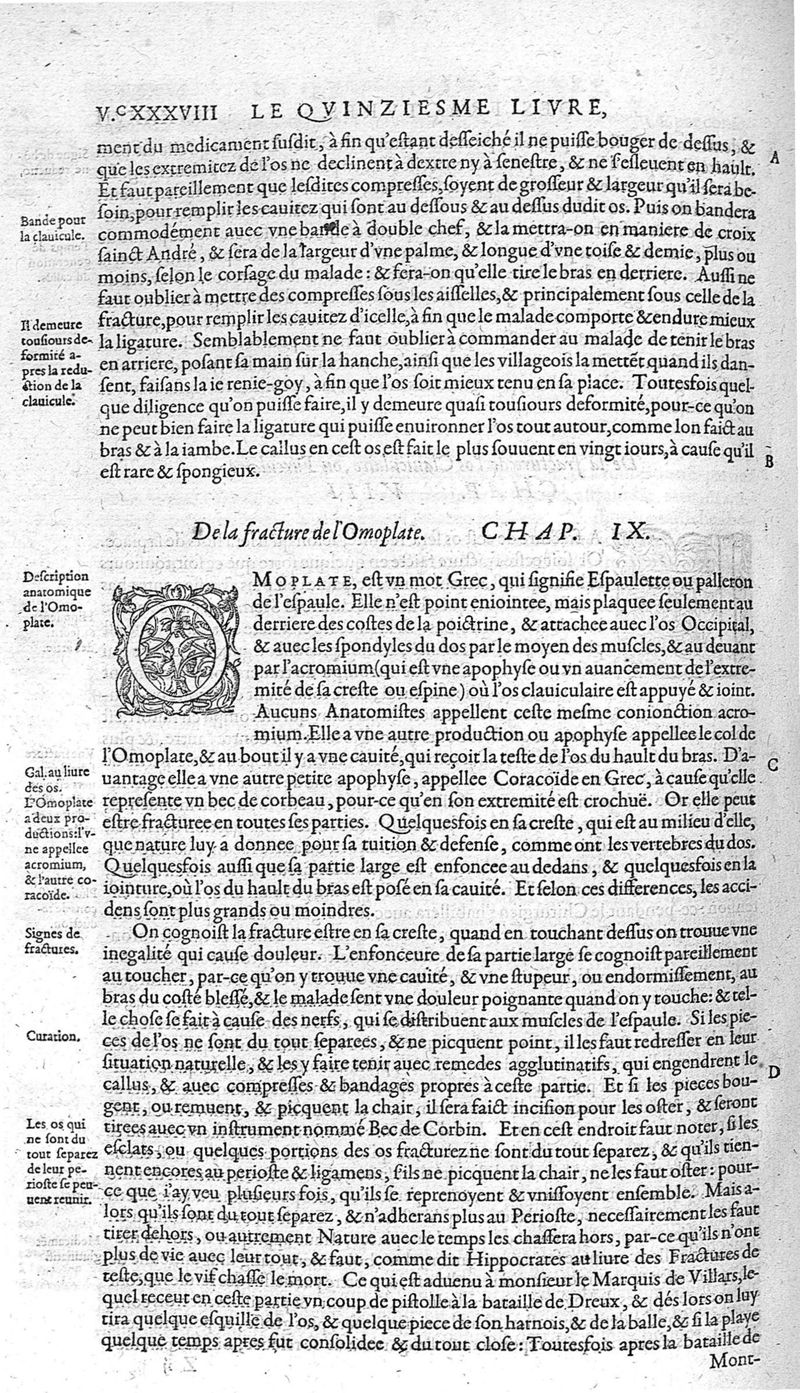 V.ᶜXXXVIII LE QVINZIESME LIVRE,
ment du medicament ſuſdit, à fin qu'eſtant deſſeiché il ne puiſſe bouger de deſſus, &
que les extremitez de l'os ne declinent à dextre ny à ſeneſtre, & ne ſ'eſleuent en hault.
Et faut pareillement que leſdites compreſſes, ſoyent de groſſeur & largeur qu'il ſera be-
ſoin, pour remplir les cauitez qui ſont au deſſous & au deſſus dudit os. Puis on bandera
commodément auec vne bande à double chef, & la mettra-on en maniere de croix
ſainct André, & ſera de la largeur d'vne palme, & longue d'vne toiſe & demie, plus ou
moins, ſelon le corſage du malade : & fera-on qu'elle tire le bras en derriere. Auſſi ne
faut oublier à mettre des compreſſes ſous les aiſſelles, & principalement ſous celle de la
fracture, pour remplir les cauitez d'icelle, à fin que le malade comporte & endure mieux
la ligature. Semblablement ne faut oublier à commander au malade de tenir le bras
en arriere, poſant ſa main ſur la hanche, ainſi que les villageois la mettẽt quand ils dan-
ſent, faiſans la ie renie-goy, à fin que l'os ſoit mieux tenu en ſa place. Toutesfois quel-
que diligence qu'on puiſſe faire, il y demeure quaſi touſiours deformité, pour-ce qu'on
ne peut bien faire la ligature qui puiſſe enuironner l'os tout autour, comme lon faict au
bras & à la iambe. Le callus en ceſt os eſt fait le plus ſouuent en vingt iours, à cauſe qu'il
eſt rare & ſpongieux.
A
Bande pour
la clauicule.
Il demeure
touſiours de-
formité a-
pres la redu-
ction de la
clauicule.
B
De la fracture de l'Omoplate. CHAP. IX.
Deſcription
anatomique
de l'Omo-
plate.
OMOPLATE, eſt vn mot Grec, qui ſignifie Eſpaulette ou palleron
de l'eſpaule. Elle n'eſt point eniointee, mais plaquee ſeulement au
derriere des coſtes de la poictrine, & attachee auec l'os Occipital,
& auec les ſpondyles du dos par le moyen des muſcles, & au deuant
par l'acromium (qui eſt vne apophyſe ou vn auancement de l'extre-
mité de ſa creſte ou eſpine) où l'os clauiculaire eſt appuyé & ioint.
Aucuns Anatomiſtes appellent ceſte meſme conionction acro-
mium. Elle a vne autre production ou apophyſe appellee le col de
l'Omoplate, & au bout il y a vne cauité, qui reçoit la teſte de l'os du hault du bras. D'a-
uantage elle a vne autre petite apophyſe, appellee Coracoïde en Grec, à cauſe qu'elle
repreſente vn bec de corbeau, pour-ce qu'en ſon extremité eſt crochuë. Or elle peut
eſtre fracturee en toutes ſes parties. Quelquesfois en ſa creſte, qui eſt au milieu d'elle,
que nature luy a donnee pour ſa tuition & defenſe, comme ont les vertebres du dos.
Quelquesfois auſſi que ſa partie large eſt enfoncee au dedans, & quelquesfois en la
iointure, où l'os du hault du bras eſt poſé en ſa cauité. Et ſelon ces differences, les acci-
dens ſont plus grands ou moindres.
C
Gal. au liure
des os.
L'Omoplate
a deux pro-
ductions : l'v-
ne appellee
acromium,
& l'autre co-
racoïde.
Signes de
fractures.
On cognoiſt la fracture eſtre en ſa creſte, quand en touchant deſſus on trouue vne
inegalité qui cauſe douleur. L'enfonceure de ſa partie large ſe cognoiſt pareillement
au toucher, par-ce qu'on y trouue vne cauité, & vne ſtupeur, ou endormiſſement, au
bras du coſté bleſſé, & le malade ſent vne douleur poignante quand on y touche : & tel-
le choſe ſe fait à cauſe des nerfs, qui ſe diſtribuent aux muſcles de l'eſpaule. Si les pie-
ces de l'os ne ſont du tout ſeparees, & ne picquent point, il les faut redreſſer en leur
ſituation naturelle, & les y faire tenir auec remedes agglutinatifs, qui engendrent le
callus, & auec compreſſes & bandages propres à ceſte partie. Et ſi les pieces bou-
gent, ou remuent, & picquent la chair, il ſera faict inciſion pour les oſter, & ſeront
tirees auec vn inſtrument nommé Bec de Corbin. Et en ceſt endroit faut noter, ſi les
eſclats, ou quelques portions des os fracturez ne ſont du tout ſeparez, & qu'ils tien-
nent encores au perioſte & ligamens, ſ'ils ne picquent la chair, ne les faut oſter : pour-
ce que i'ay veu pluſieurs fois, qu'ils ſe reprenoyent & vniſſoyent enſemble. Mais a-
lors qu'ils ſont du tout ſeparez, & n'adherans plus au Perioſte, neceſſairement les faut
tirer dehors, ou autrement Nature auec le temps les chaſſera hors, par-ce qu'ils n'ont
plus de vie auec leur tout, & faut, comme dit Hippocrates au liure des Fractures de
teſte, que le vif chaſſe le mort. Ce qui eſt aduenu à monſieur le Marquis de Villars, le-
quel receut en ceſte partie vn coup de piſtolle à la bataille de Dreux, & dés lors on luy
tira quelque eſquille de l'os, & quelque piece de ſon harnois, & de la balle, & ſi la playe
quelque temps apres fut conſolidee & du tout cloſe : Toutesfois apres la bataille de
Mont-
Curation.
D
Les os qui
ne ſont du
tout ſeparez
de leur pe-
rioſte ſe peu-
uent reunir.